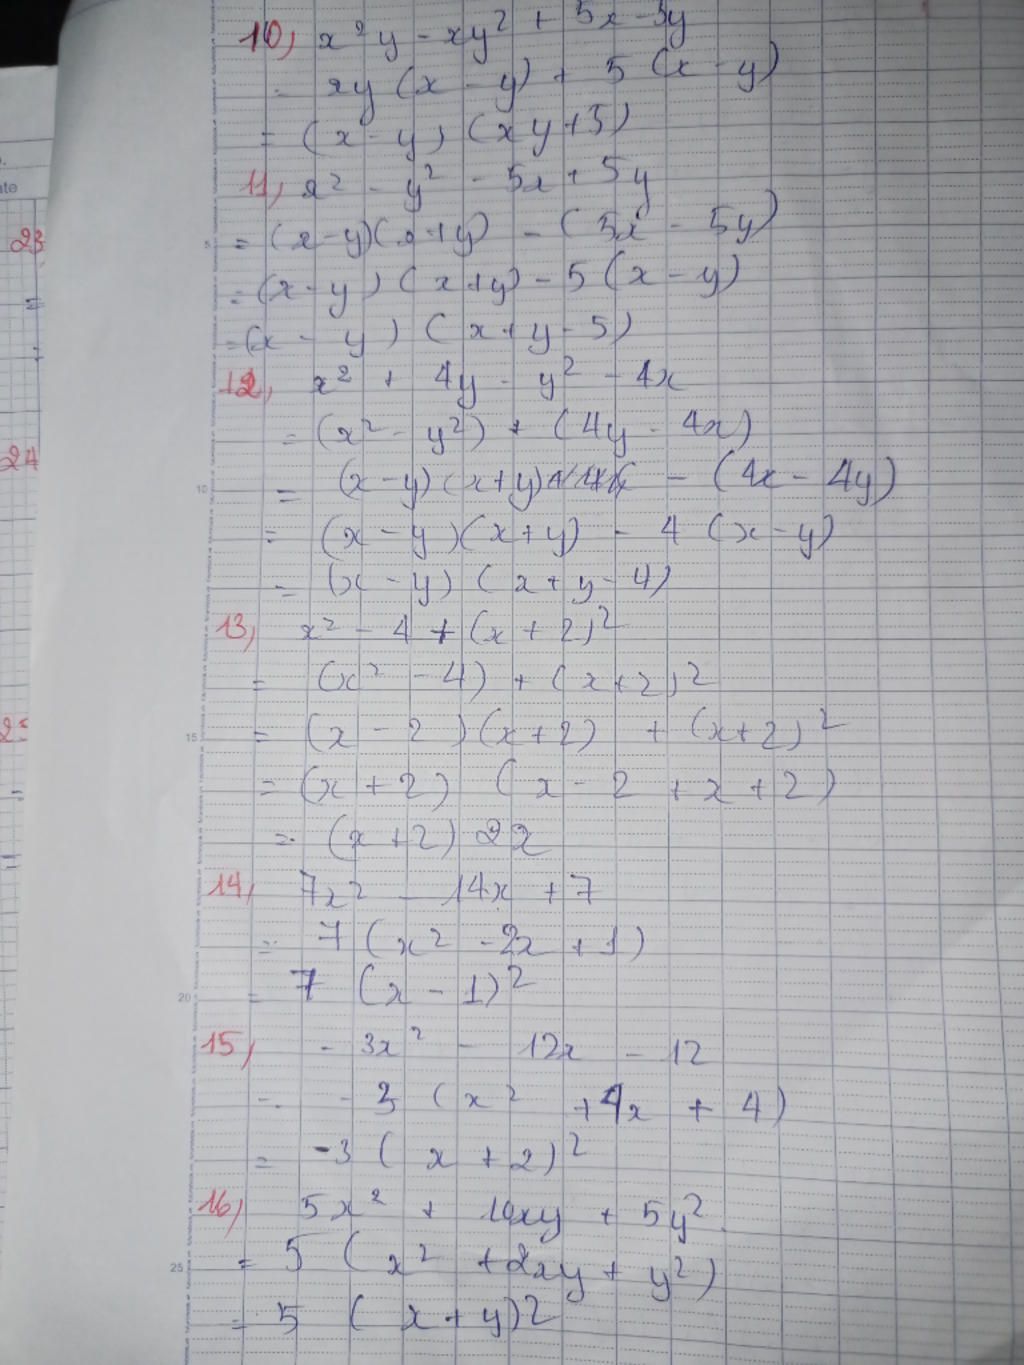 10, x²y - xy² + 5x - 5y
= xy (x - y) + 5 (x - y)
= (x - y) (xy + 5)
11, x² - y² - 5x + 5y
= (x - y)(x + y) - (5x - 5y)
= (x - y) (x + y) - 5 (x - y)
= (x - y) (x + y - 5)
12, x² + 4y - y² - 4x
= (x² - y²) + (4y - 4x)
= (x - y) (x + y) - (4x - 4y)
= (x - y)(x + y) - 4 (x - y)
= (x - y) (x + y - 4)
13, x² - 4 + (x + 2)²
= (x² - 4) + (x + 2)²
= (x - 2)(x + 2) + (x + 2)²
= (x + 2) (x - 2 + x + 2)
= (x + 2) 2x
14, 7x² - 14x + 7
= 7 (x² - 2x + 1)
= 7 (x - 1)²
15, - 3x² - 12x - 12
= - 3 (x² + 4x + 4)
= -3 (x + 2)²
16, 5x² + 10xy + 5y²
= 5 (x² + 2xy + y²)
= 5 (x + y)²
23
24
5
10
15
20
25